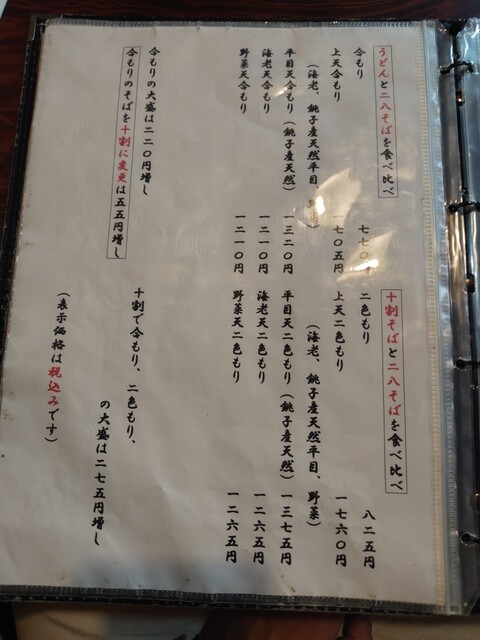 うどんと二八そばを食べ比べ
合もり 七七〇円
上天合もり 一七〇五円
(海老、銚子産天然平目、野菜)
平目天合もり(銚子産天然) 一三二〇円
海老天合もり 一二一〇円
野菜天合もり 一二一〇円
合もりの大盛は二二〇円増し
合もりのそばを十割に変更は五五円増し
十割そばと二八そばを食べ比べ
二色もり 八二五円
上天二色もり 一七六〇円
(海老、銚子産天然平目、野菜)
平目天二色もり(銚子産天然) 一三七五円
海老天二色もり 一二六五円
野菜天二色もり 一二六五円
十割で合もり、二色もり、
の大盛は二七五円増し
(表示価格は税込みです)